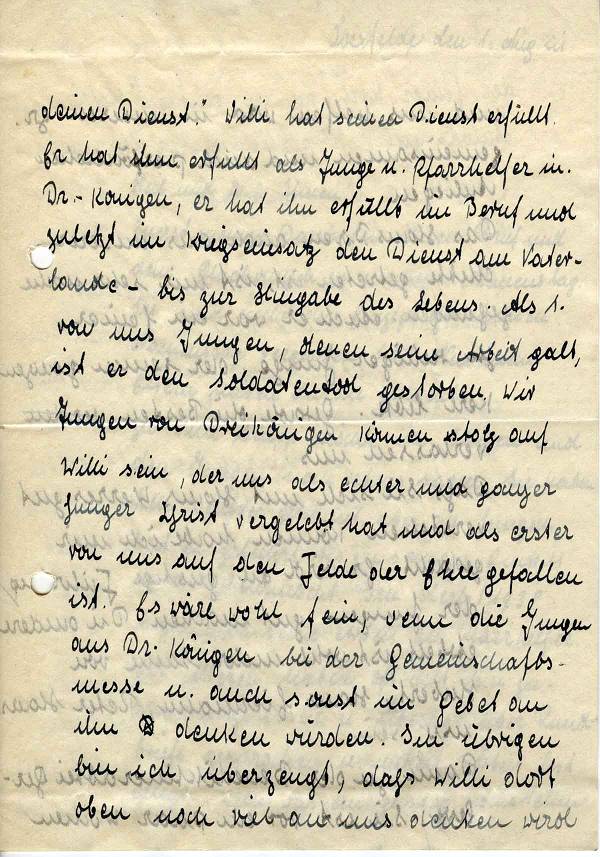 deinen Dienst." Willi hat seinen Dienst erfüllt.
Er hat ihn erfüllt als Junge u. Pfarrhelfer in
Dr.-Königen, er hat ihn erfüllt im Beruf und
zuletzt im Kriegseinsatz den Dienst am Vater-
lande - bis zur Hingabe des Lebens. Als 1.
von uns Jungen, denen seine Arbeit galt,
ist er den Soldatentod gestorben. Wir
Jungen von Dreikönigen können stolz auf
Willi sein, der uns als echter und ganzer
junger Christ vorgelebt hat und als erster
von uns auf den Felde der Ehre gefallen
ist. Es wäre wohl fein, wenn die Jungen
aus Dr. Königen bei der Gemeinschafts-
messe u. auch sonst im Gebet an
ihn denken würden. Im übrigen
bin ich überzeugt, dass Willi dort
oben noch viel an uns denken wird